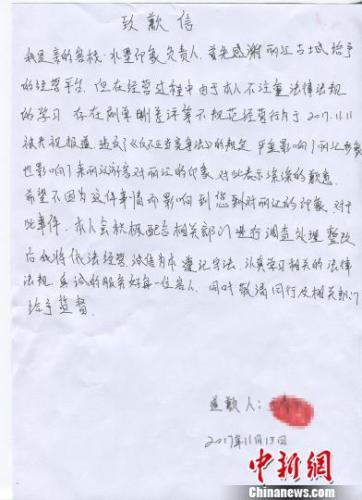 致歉信
我是亲的客栈·水墨印象负责人,首先感谢丽江古城给予
的经营平台,但在经营过程中由于本人不注重法律法规
的学习,存在刷单删差评等不规范经营行为于2017.11.11
被央视报道,违反了《反不正当竞争法》的规定,严重影响了丽江形象
也影响了来丽江游客对丽江的印象,对此表示深深的歉意,
希望不因为这件事情而影响到您到对丽江的印象,对于
此事件,本人会积极配合相关部门进行调查处理,整改
后我将依法经营,诚信为本,遵纪守法,认真学习相关的法律
法规,真诚的服务好每一位客人,同时敬请同行及相关部门
给予监督.
道歉人:
2017年11月15日
中新网
Chinanews.com